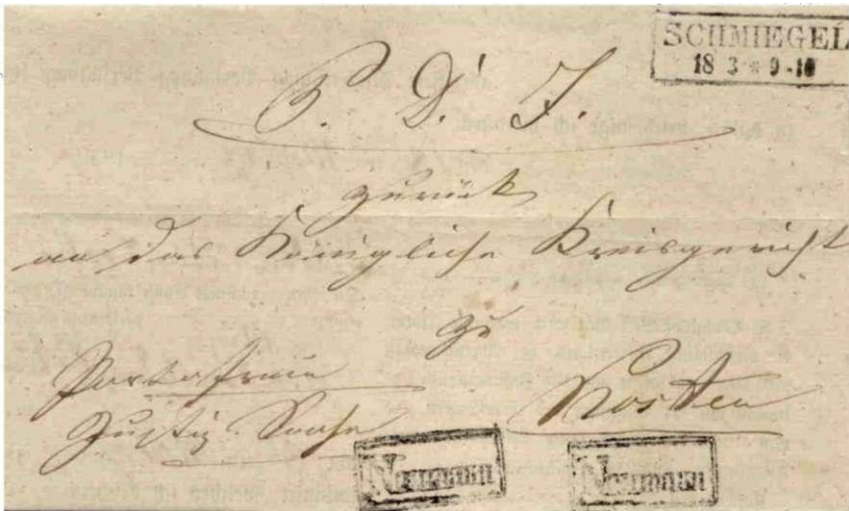 SCHMIEGEL
18 3 * 9-10
P. D. J.
zurück
an das Königliche Kreisgericht
zu
Kosten
Portofreie
Justiz Sache
Neumann
Neumann